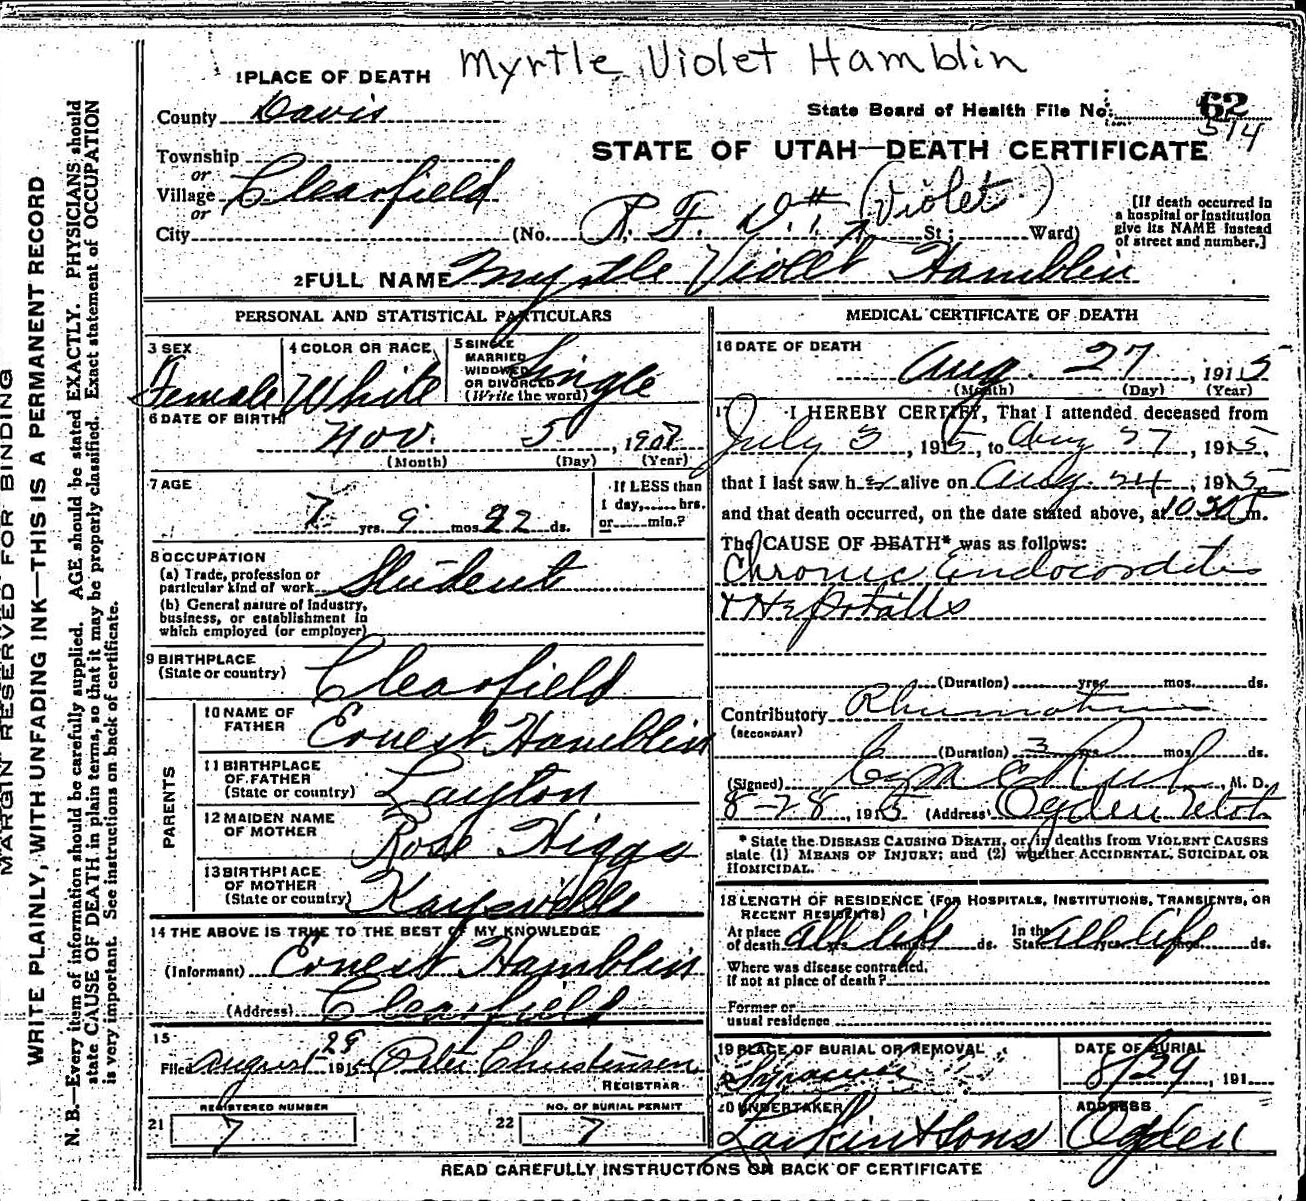 Myrtle Violet Hamblin
1 PLACE OF DEATH
County Davis
State Board of Health File No. 62
514
STATE OF UTAH—DEATH CERTIFICATE
Township
or
Village Clearfield
or
City (No. R. F. D. #1 St; Ward)
(Violet)
[If death occurred in
a hospital or institution
give its NAME instead
of street and number.]
2 FULL NAME Myrtle Violet Hamblin
PERSONAL AND STATISTICAL PARTICULARS
3 SEX
Female
4 COLOR OR RACE
White
5 SINGLE
MARRIED
WIDOWED
OR DIVORCED
(Write the word)
Single
6 DATE OF BIRTH
Nov. 5, 1907
(Month) (Day) (Year)
7 AGE
7 yrs. 9 mos. 22 ds.
If LESS than
1 day, hrs.
or min.?
8 OCCUPATION
(a) Trade, profession or
particular kind of work Student
(b) General nature of industry,
business, or establishment in
which employed (or employer)
9 BIRTHPLACE
(State or country) Clearfield
PARENTS
10 NAME OF
FATHER Ernest Hamblin
11 BIRTHPLACE
OF FATHER
(State or country) Layton
12 MAIDEN NAME
OF MOTHER Rose Higgs
13 BIRTHPLACE
OF MOTHER
(State or country) Kaysville
14 THE ABOVE IS TRUE TO THE BEST OF MY KNOWLEDGE
(Informant) Ernest Hamblin
(Address) Clearfield
15
Filed August 29 1915 Peter Christensen
REGISTRAR
21 REGISTERED NUMBER
7
22 NO. OF BURIAL PERMIT
7
MEDICAL CERTIFICATE OF DEATH
16 DATE OF DEATH
Aug. 27, 1915
(Month) (Day) (Year)
17 I HEREBY CERTIFY, That I attended deceased from
July 3, 1915, to Aug 27, 1915,
that I last saw her alive on Aug. 24, 1915,
and that death occurred, on the date stated above, at 10 30 P m.
The CAUSE OF DEATH* was as follows:
Chronic Endocarditis
(Duration) yrs. mos. ds.
Contributory Rhumatism
(SECONDARY)
(Duration) 3 yrs. mos. ds.
(Signed) M. D.
8-28, 1915 (Address) Ogden Utah
* State the DISEASE CAUSING DEATH, or, in deaths from VIOLENT CAUSES
state (1) MEANS OF INJURY; and (2) whether ACCIDENTAL, SUICIDAL OR
HOMICIDAL.
18 LENGTH OF RESIDENCE (FOR HOSPITALS, INSTITUTIONS, TRANSIENTS, OR
RECENT RESIDENTS)
At place
of death all life yrs. mos. ds.
In the
State all life yrs. mos. ds.
Where was disease contracted,
if not at place of death?
Former or
usual residence
19 PLACE OF BURIAL OR REMOVAL
Syracuse
DATE OF BURIAL
8/29, 191
20 UNDERTAKER
Larkin & Sons
ADDRESS
Ogden
READ CAREFULLY INSTRUCTIONS ON BACK OF CERTIFICATE
MARGIN RESERVED FOR BINDING
WRITE PLAINLY, WITH UNFADING INK—THIS IS A PERMANENT RECORD
N. B.—Every item of information should be carefully supplied. AGE should be stated EXACTLY. PHYSICIANS should
state CAUSE OF DEATH in plain terms, so that it may be properly classified. Exact statement of OCCUPATION
is very important. See instructions on back of certificate.